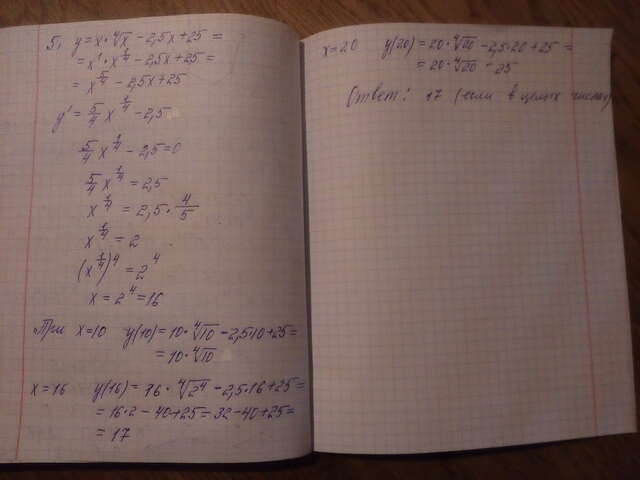 5, y = x · ⁴√x − 2,5x + 25 =
= x¹ · x^(1/4) − 2,5x + 25 =
= x^(5/4) − 2,5x + 25
y' = 5/4 x^(1/4) − 2,5
5/4 x^(1/4) − 2,5 = 0
5/4 x^(1/4) = 2,5
x^(1/4) = 2,5 · 4/5
x^(1/4) = 2
(x^(1/4))⁴ = 2⁴
x = 2⁴ = 16
При x=10 y(10) = 10 · ⁴√10 − 2,5·10 + 25 =
= 10 · ⁴√10
x = 16 y(16) = 16 · ⁴√2⁴ − 2,5·16 + 25 =
= 16·2 − 40 + 25 = 32 − 40 + 25 =
= 17
x = 20 y(20) = 20 · ⁴√20 − 2,5·20 + 25 =
= 20 · ⁴√20 − 25
Ответ: 17 (если в целых числах)